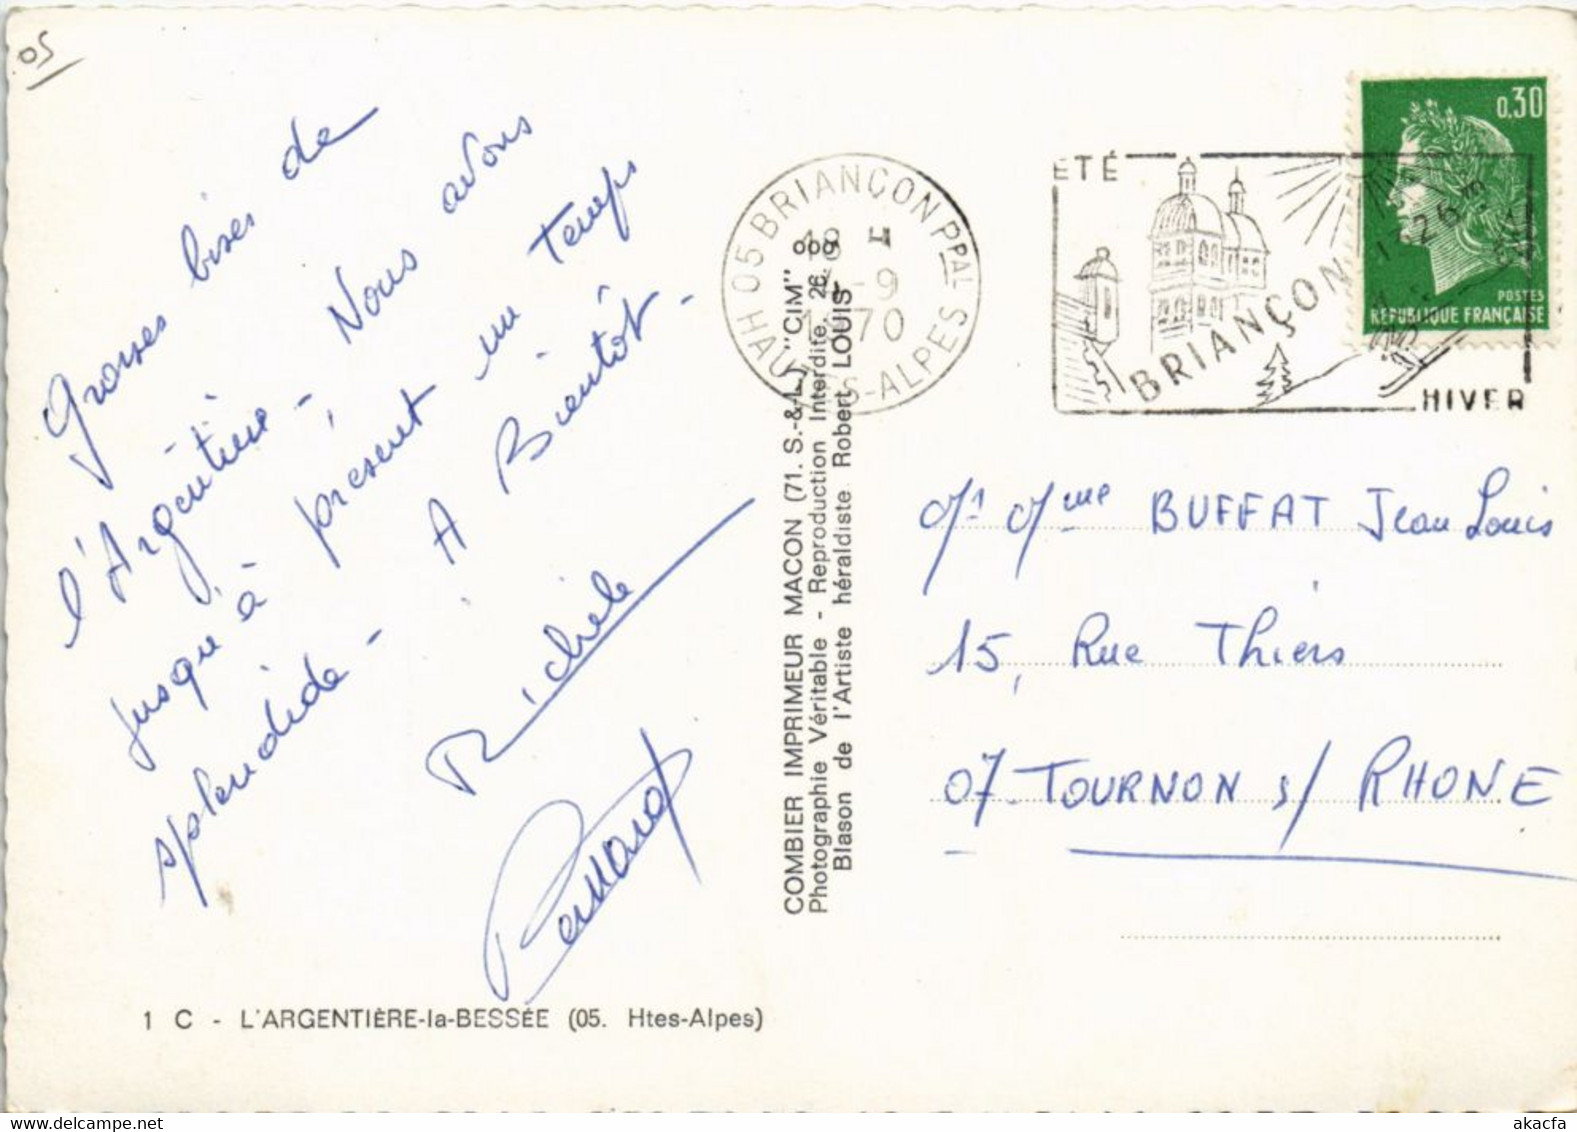 05
Grosses bises de
l'Argentière -, Nous avons
jusqu'à présent un temps
splendide - A Bientôt -
Michèle
1 C - L'ARGENTIÈRE-la-BESSÉE (05. Htes-Alpes)
COMBIER IMPRIMEUR MACON (71. S.-&-L.) "CIM"
Photographie Véritable - Reproduction Interdite. 26.
Blason de l'Artiste héraldiste Robert LOUIS
05 BRIANÇON PPAL
18 H
-9
1970
HAUTES-ALPES
ÉTÉ
BRIANÇON
HIVER
0,30
POSTES
RÉPUBLIQUE FRANÇAISE
Mr Mme BUFFAT Jean Louis
15, Rue Thiers
07-TOURNON s/ RHONE
akacfa